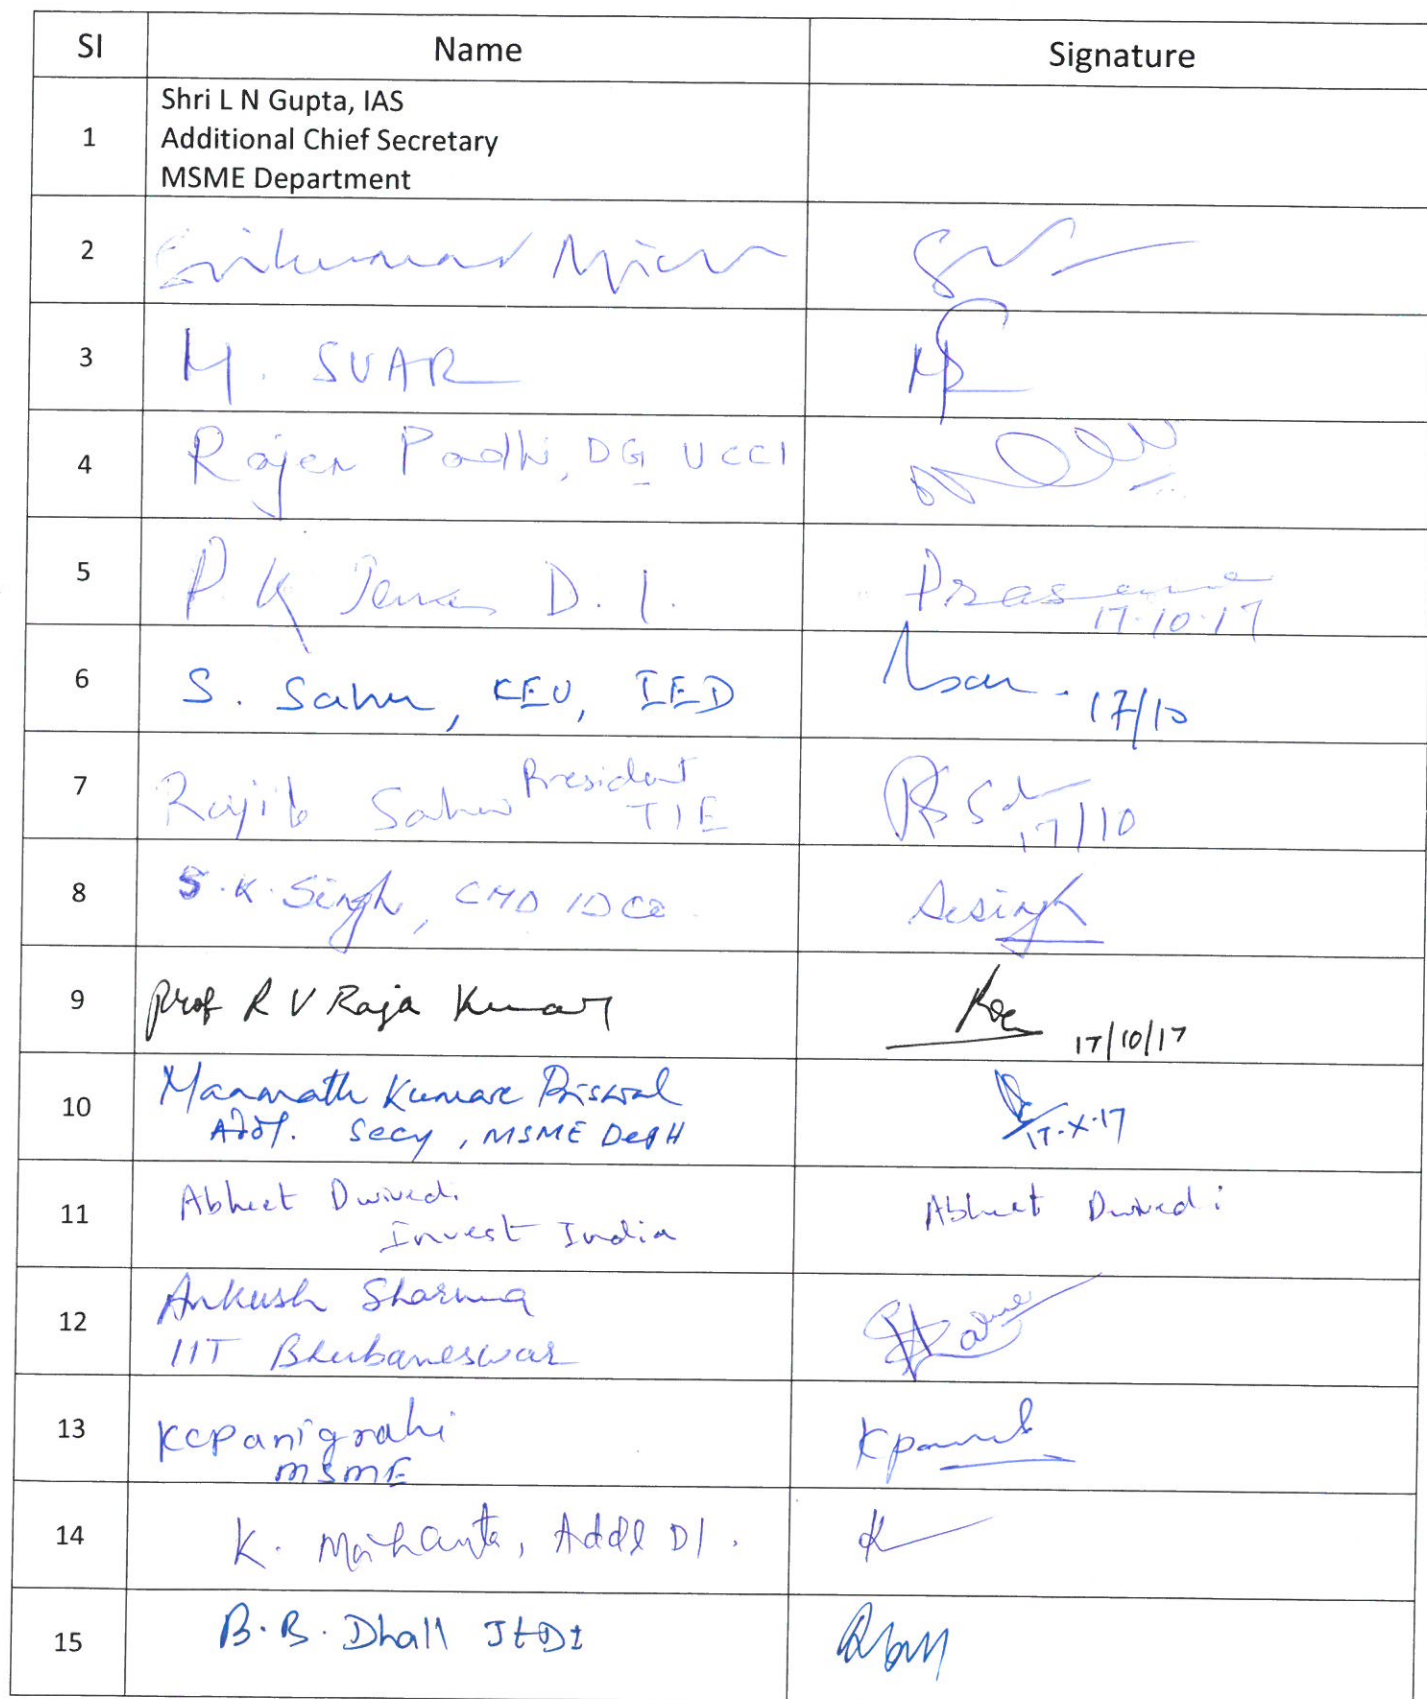 Sl Name Signature
1 Shri L N Gupta, IAS
Additional Chief Secretary
MSME Department
2 Srikumar Misra
3 M. SUAR
4 Rajen Padhi, DG UCCI
5 P K Jena D.I. Prasanna
17.10.17
6 S. Sahu, CEO, IED 17/10
7 Rajib Sahu President
TIE 17/10
8 S.K. Singh, CMD IDCO Sksingh
9 Prof R V Raja Kumar 17/10/17
10 Manmath Kumar Biswal
Addl. Secy, MSME Deptt 17-X-17
11 Abheet Dwivedi Abheet Dwivedi
Invest India
12 Ankush Sharma
IIT Bhubaneswar
13 KCPanigrahi
MSME
14 K. Mohanta, Addl DI.
15 B.B. Dhall JtDI